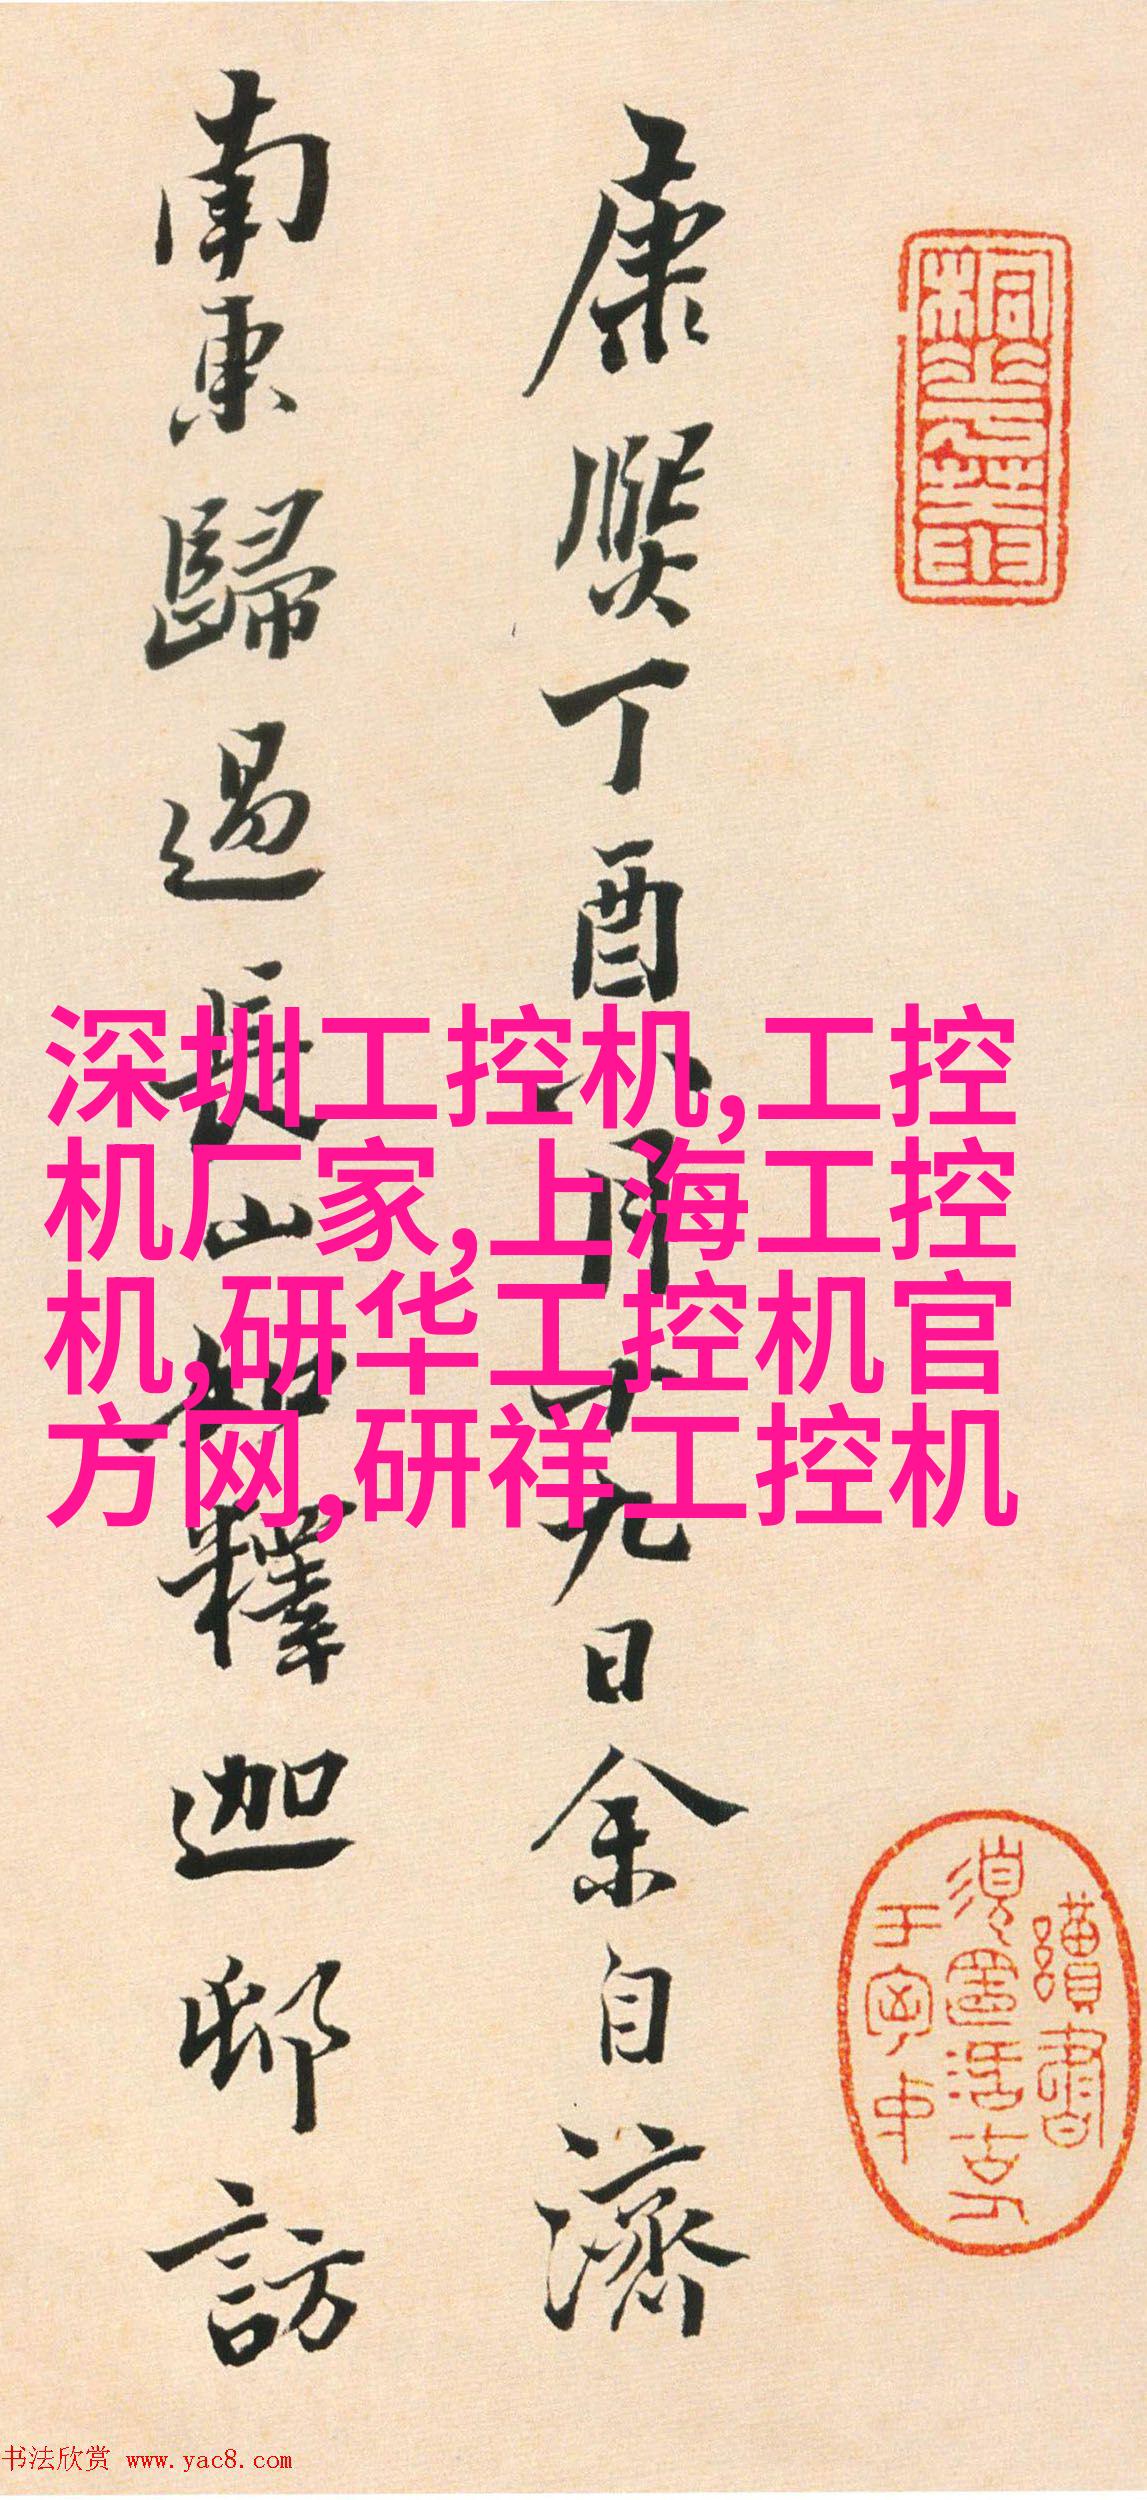 康熙丁酉八月廿九日余自濟
南東歸過長山如釋迦邨訪
深圳工控机,工控
机厂家,上海工控
机,研华工控机官
方网,研祥工控机
书法欣赏 www.yac8.com